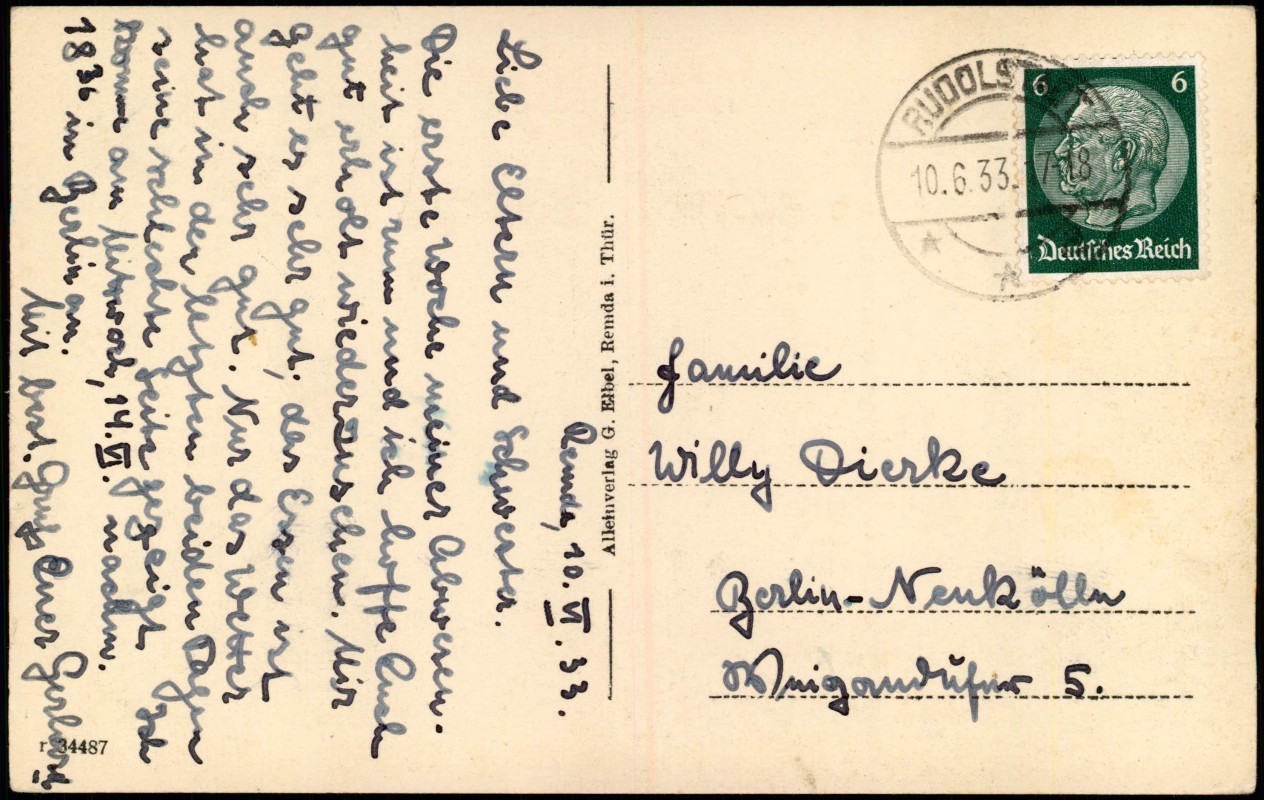 Remda, 10. VI. 33.
Liebe Eltern und Schwester.
Die erste Woche meiner Abwesen-
heit ist nun und ich hoffe Euch
gut erholt wiederzusehen. Mir
geht es sehr gut, das Essen ist
auch sehr gut. Nur das Wetter
hat in den letzten beiden Tagen
seine schlechte Seite gezeigt. Ich
komme am Mittwoch, 14. VI. nachm.
18 36 in Berlin an.
Mit best. Gruß Euer Gerhard
r 34487
Alleinverlag G. Elbel, Remda i. Thür.
RUDOLST
10.6.33. 17-18
6 6
Deutsches Reich
Familie
Willy Dierke
Berlin-Neukölln
Weigandufer 5.